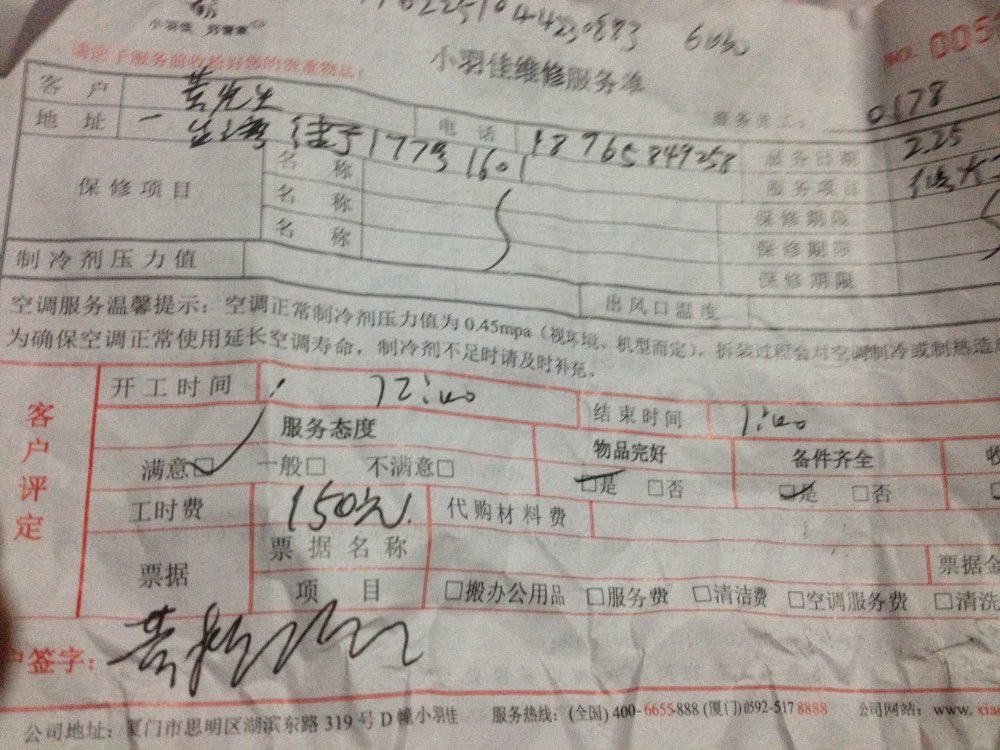 小羽佳 好管家
6040
NO. 005
请您于服务前收份好您的贵重物品!
小羽佳维修服务单
服务员工: 0178
客户 黄先生 电话 18765849258 服务日期 2.25
地址 177号1601 服务项目
保修项目 名称 保修期限
名称 保修期限
名称 保修期限
制冷剂压力值 出风口温度
空调服务温馨提示: 空调正常制冷剂压力值为0.45mpa (视环境、机型而定), 拆装过程会对空调制冷或制热造成
为确保空调正常使用延长空调寿命, 制冷剂不足时请及时补充。
客户评定
开工时间 12:40 结束时间 1:40
服务态度 物品完好 备件齐全 收
满意□ 一般□ 不满意□ □是 □否 □是 □否
工时费 150元 代购材料费
票据 票据名称 票据金
项目 □搬办公用品 □服务费 □清洁费 □空调服务费 □清洗
户签字:
公司地址: 厦门市思明区湖滨东路319号D幢小羽佳 服务热线: (全国) 400-6655-888 (厦门) 0592-5178888 公司网站: www. xiao